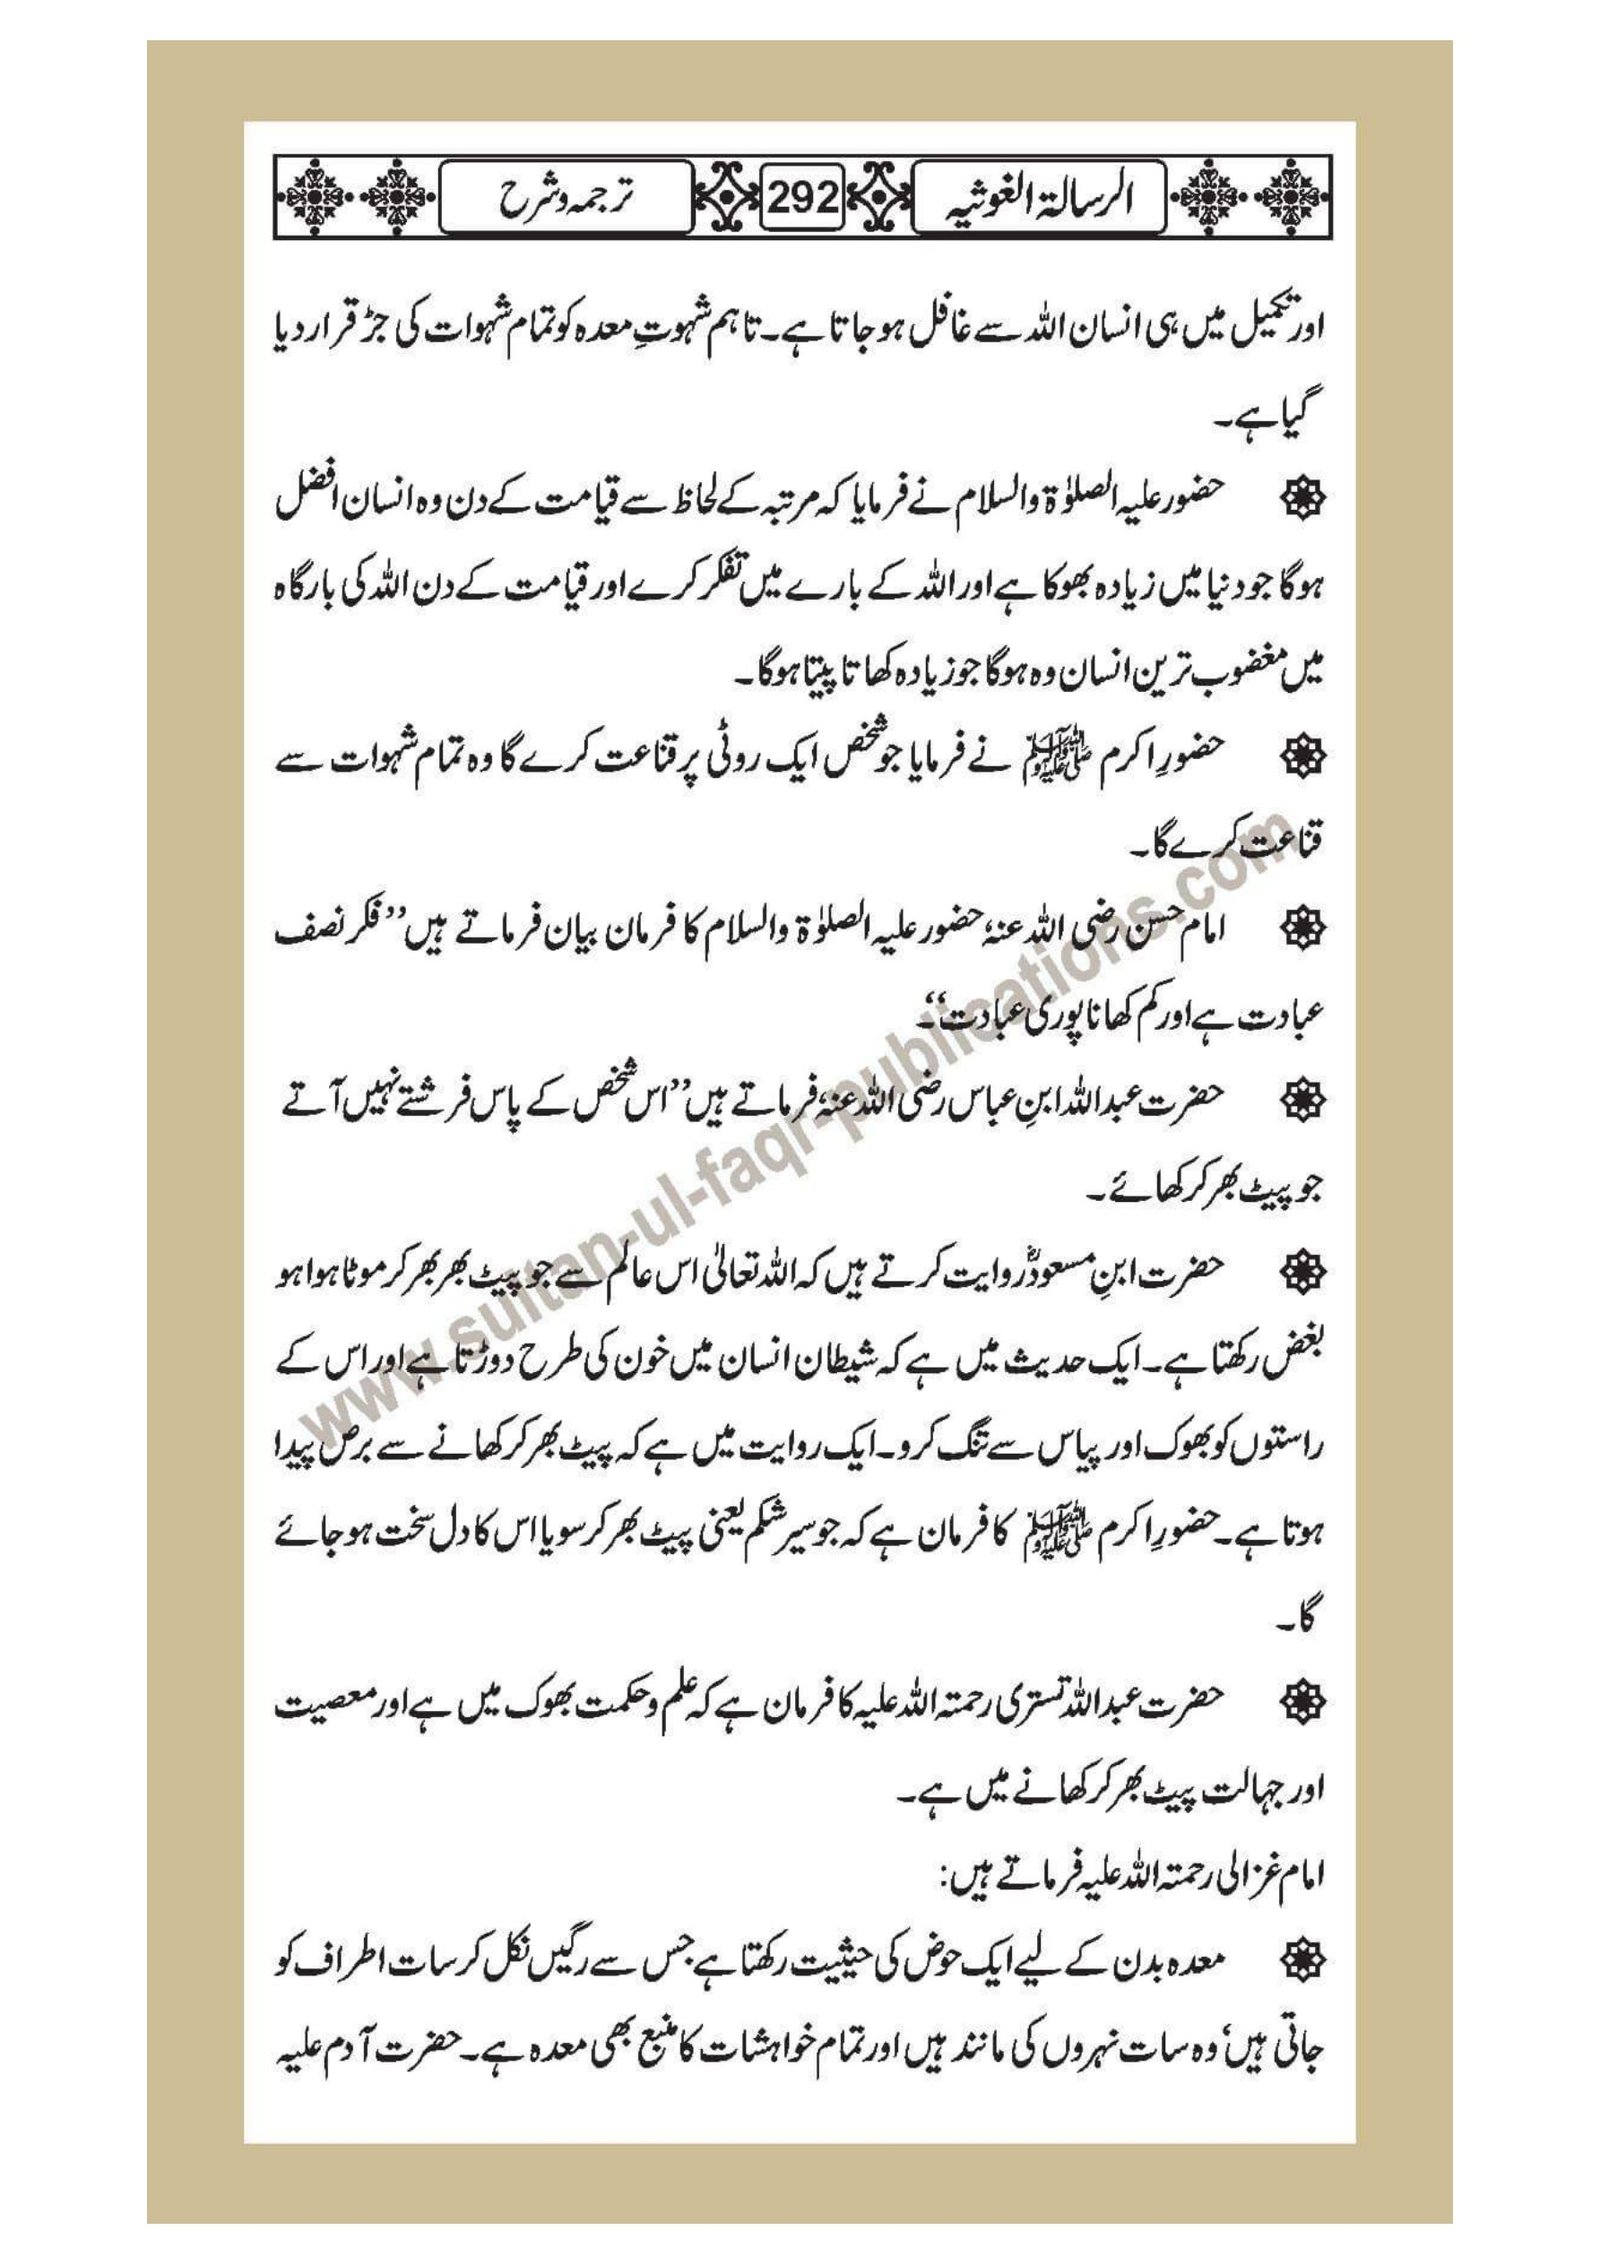 الرسالۃ الغوثیہ 292 ترجمہ و شرح
اور تکمیل میں ہی انسان اللہ سے غافل ہو جاتا ہے۔ تاہم شہوتِ معدہ کو تمام شہوات کی جڑ قرار دیا
گیا ہے۔
حضور علیہ الصلوٰۃ والسلام نے فرمایا کہ مرتبہ کے لحاظ سے قیامت کے دن وہ انسان افضل
ہوگا جو دنیا میں زیادہ بھوکا ہے اور اللہ کے بارے میں تفکر کرے اور قیامت کے دن اللہ کی بارگاہ
میں مغضوب ترین انسان وہ ہوگا جو زیادہ کھاتا پیتا ہوگا۔
حضورِ اکرم ﷺ نے فرمایا جو شخص ایک روٹی پر قناعت کرے گا وہ تمام شہوات سے
قناعت کرے گا۔
امام حسن رضی اللہ عنہٗ حضور علیہ الصلوٰۃ والسلام کا فرمان بیان فرماتے ہیں ’’فکر نصف
عبادت ہے اور کم کھانا پوری عبادت‘‘۔
حضرت عبداللہ ابنِ عباس رضی اللہ عنہٗ فرماتے ہیں ’’اس شخص کے پاس فرشتے نہیں آتے
جو پیٹ بھر کر کھائے۔
حضرت ابنِ مسعودؓ روایت کرتے ہیں کہ اللہ تعالیٰ اس عالم سے جو پیٹ بھر بھر کر موٹا ہوا ہو
بغض رکھتا ہے۔ ایک حدیث میں ہے کہ شیطان انسان میں خون کی طرح دوڑتا ہے اور اس کے
راستوں کو بھوک اور پیاس سے تنگ کرو۔ ایک روایت میں ہے کہ پیٹ بھر کر کھانے سے برص پیدا
ہوتا ہے۔ حضورِ اکرم ﷺ کا فرمان ہے کہ جو سیر شکم یعنی پیٹ بھر کر سویا اس کا دل سخت ہو جائے
گا۔
حضرت عبداللہ تستری رحمتہ اللہ علیہ کا فرمان ہے کہ علم و حکمت بھوک میں ہے اور معصیت
اور جہالت پیٹ بھر کر کھانے میں ہے۔
امام غزالی رحمتہ اللہ علیہ فرماتے ہیں:
معدہ بدن کے لیے ایک حوض کی حیثیت رکھتا ہے جس سے رگیں نکل کر سات اطراف کو
جاتی ہیں‘ وہ سات نہروں کی مانند ہیں اور تمام خواہشات کا منبع بھی معدہ ہے۔ حضرت آدم علیہ
www.sultan-ul-faqr-publications.com